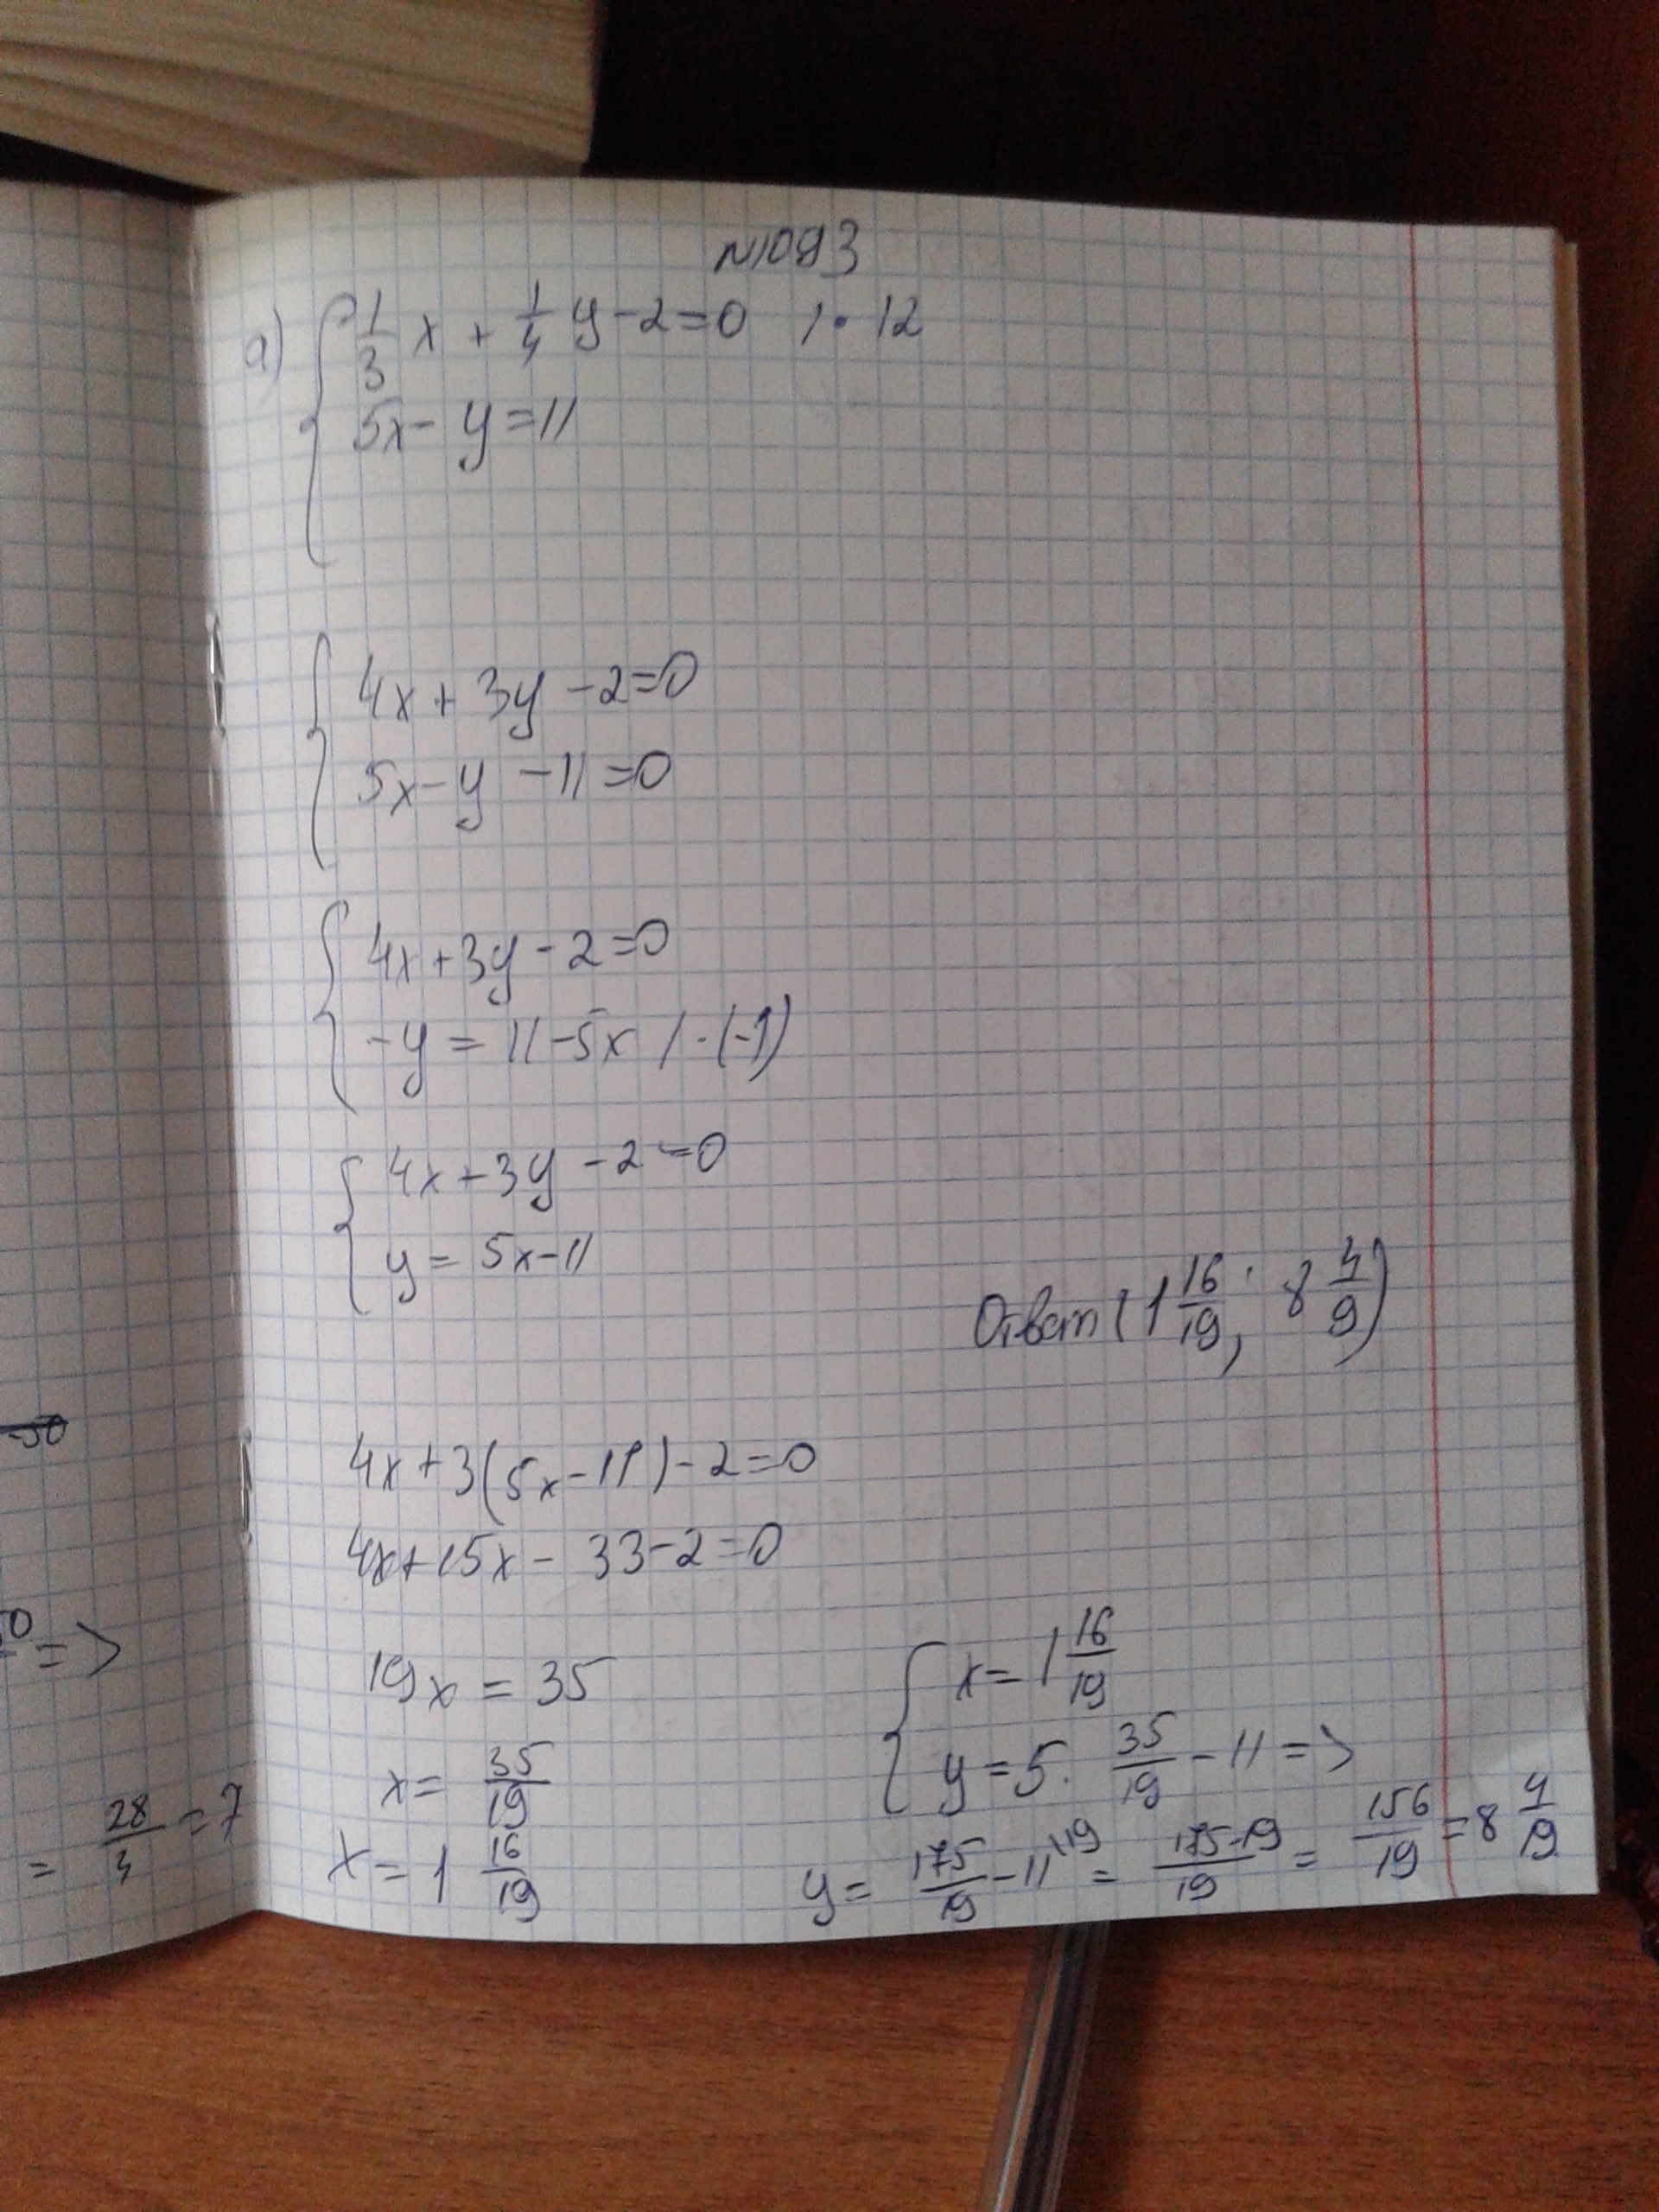 №1093
а) { 1/3 x + 1/4 y - 2 = 0 | · 12
5x - y = 11
{ 4x + 3y - 2 = 0
5x - y - 11 = 0
{ 4x + 3y - 2 = 0
-y = 11 - 5x / · (-1)
{ 4x + 3y - 2 = 0
y = 5x - 11
4x + 3(5x - 11) - 2 = 0
4x + 15x - 33 - 2 = 0
19x = 35
x = 35/19
x = 1 16/19
{ x = 1 16/19
y = 5 · 35/19 - 11 =>
y = 175/19 - 11 = (175-19)/19 = 156/19 = 8 4/19
Ответ (1 16/19; 8 4/9)
-50
=>
= 28/4 = 7